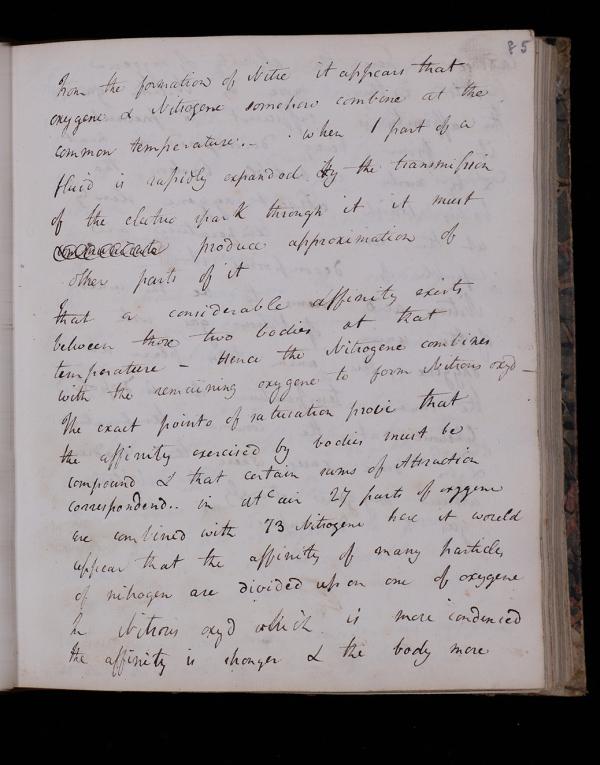 85
From the formation of Nitre it appears that
oxygene & Nitrogene somehow combine at the
common temperature. - . when 1 part of a
fluid is rapidly expanded by the transmission
of the electric spark through it it must
communicate produce approximation of
other parts of it
That a considerable affinity exists
between those two bodies at that
temperature - Hence the Nitrogene combines
with the remaining oxygene to form Nitrous oxyd -
The exact points of saturation prove that
the affinity exercised by bodies must be
compound & that certain sums of Attraction
correspondend.. in Atc air 27 parts of oxygene
are combined with 73 Nitrogene here it would
appear that the affinity of many particles
of nitrogen are divided upon one of oxygene
In Nitrous oxyd which is more condensed
the affinity is stronger & the body more